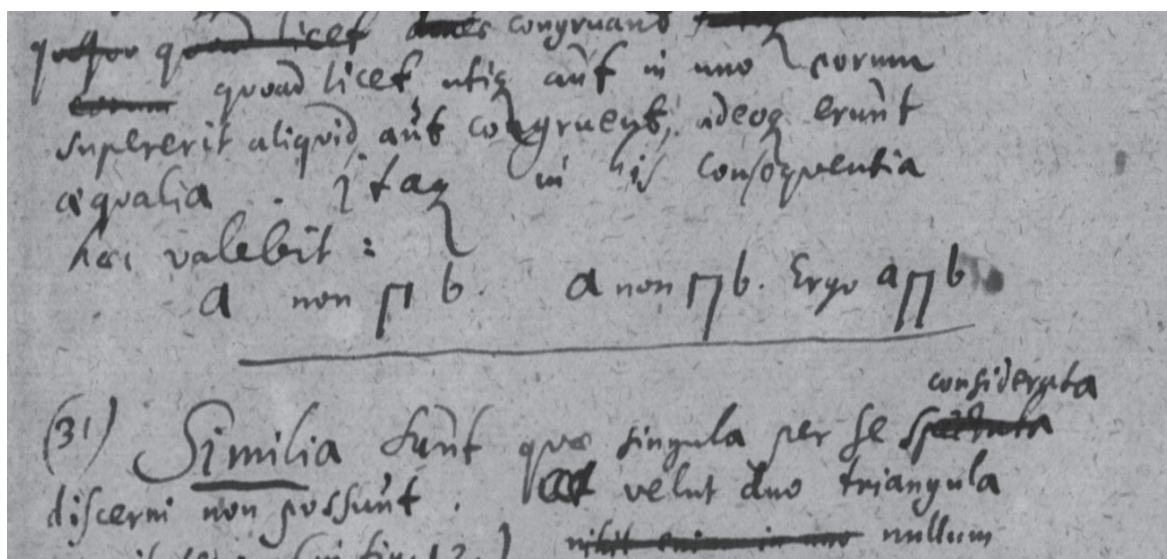 quoad licet congruant
quoad licet utiq aut in uno eorum
supererit aliquid aut congruent, adeoq erunt
æqualia . itaq in his consequentia
hæc valebit :
a non ⊓ b. a non ⊓ b. Ergo a ⊓ b
considerata
(31) Similia sunt quæ singula per se spectata
discerni non possunt . velut duo triangula
nihil enim in uno nullum